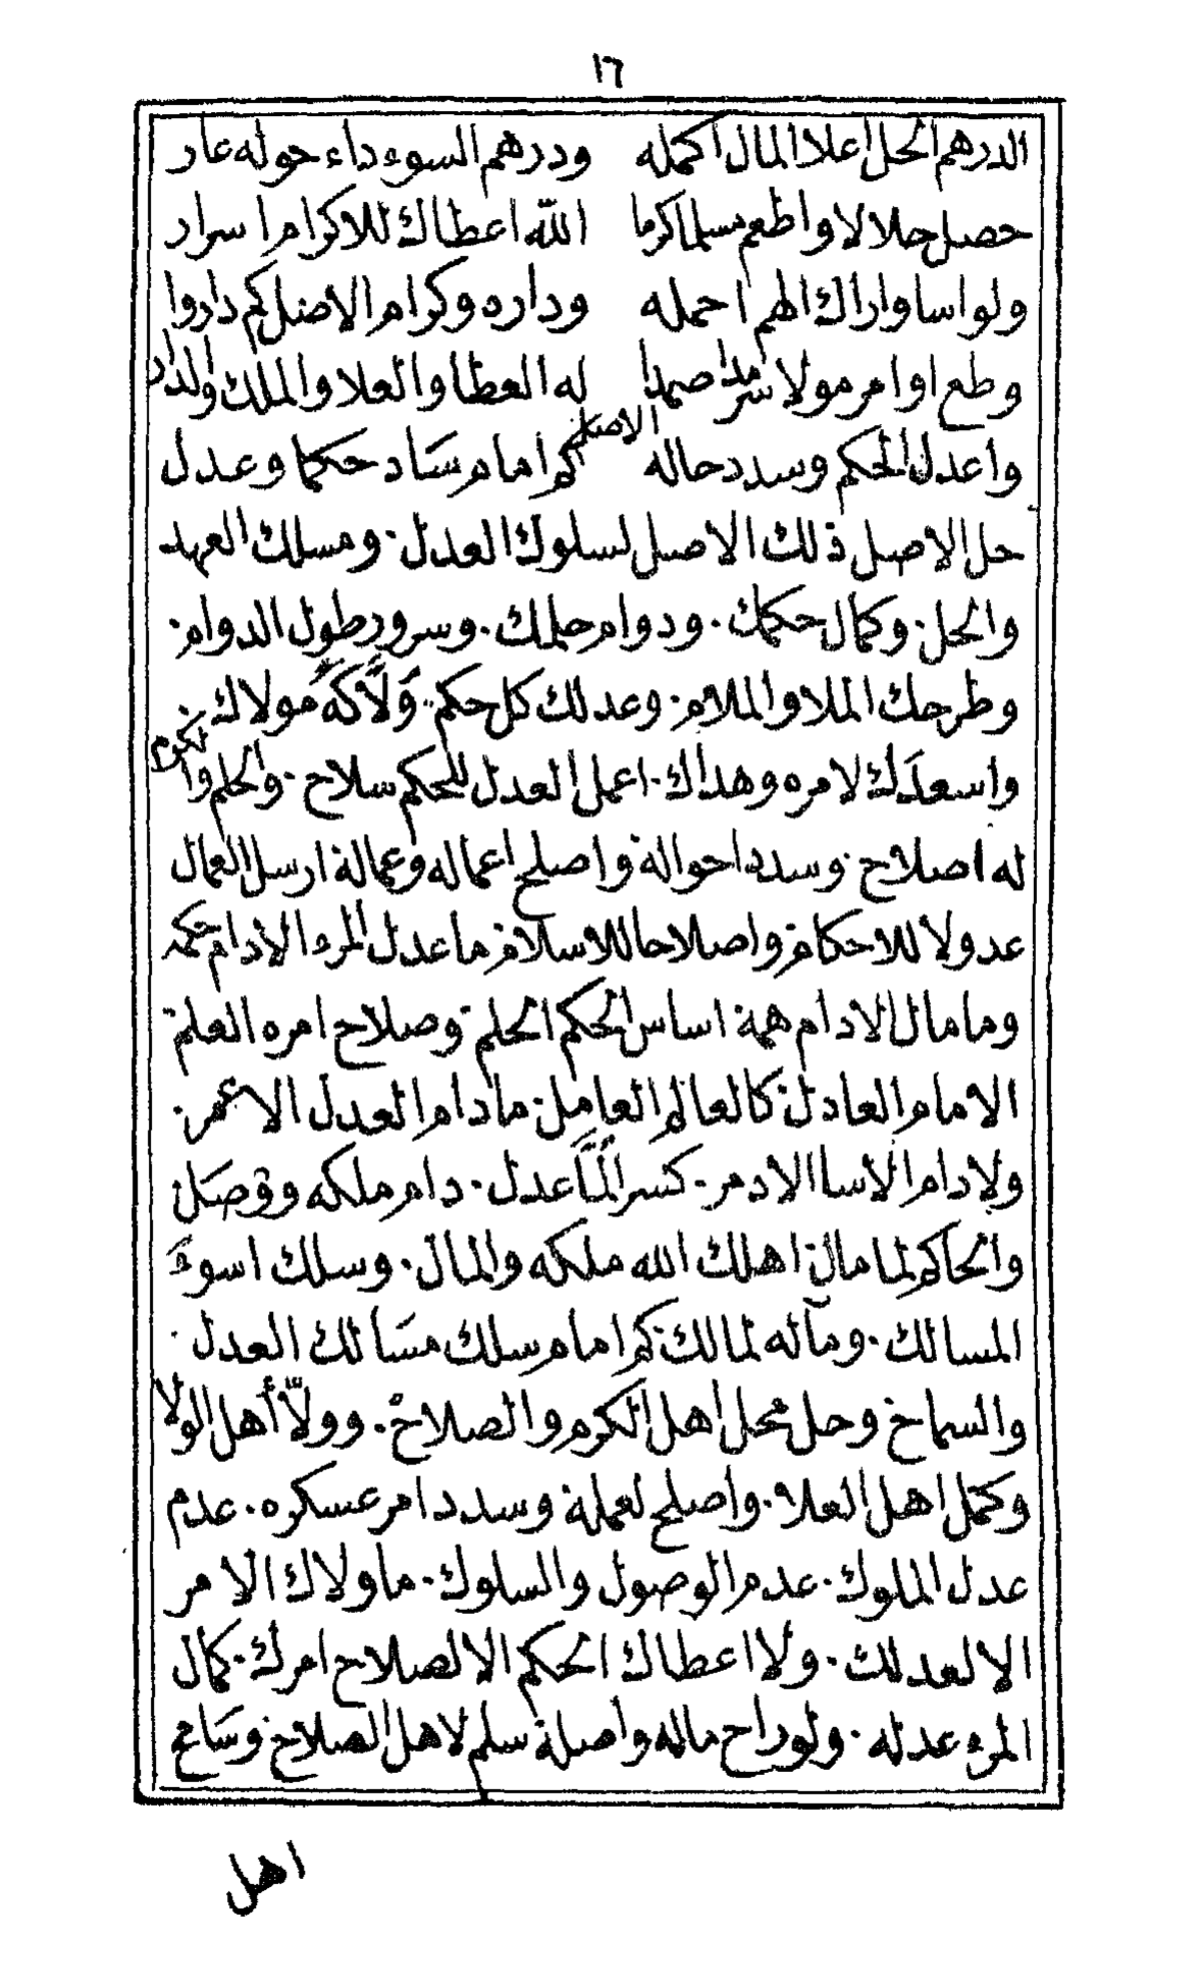 ١٦
الدرهم الحل اعلا المال اكمله ودرهم السوء داء حوله عار
حصل حلالا واطعم مسلما كرما الله اعطاك للاكرام اسرار
ولو اسا واراك الهم احمله وداره وكرام الاصل كم داروا
وطع اوامر مولا سرمدا صمدا له العطا والعلا والملك والدار
واعدل الحكم وسدد حاله الاصل كم امام ساد حكما وعدل
حل الاصل ذلك الاصل لسلوك العدل. ومسلك العهد
والحل. وكمال حكمك. ودوام حلمك. وسرور طول الدوام.
وطرحك الملا والملام. وعدلك كل حكم. وَلَّاكَهُ مولاك.
واسعدك لامره وهداك. اعمل العدل للحكم سلاح. والحلم والكرم
له اصلاح. وسدد احواله واصلح اعماله وعماله ارسل العمال
عدولا للاحكام واصلاحا للاسلام ما عدل المرء الا دام حكمه
وما مال الا دام همه اساس الحكم الحلم. وصلاح امره العلم.
الامام العادل كالعالم العامل. ما دام العدل الا عمر.
ولا دام الاسا الا دمر. كسرا لمّا عدل. دام ملكه ووصل.
والحاكم لما مال اهلك الله ملكه والمال. وسلك اسوءَ
المسالك. ومآله لمالك. كم امام سلك مسالك العدل.
والسماح وحل محل اهل الكرم والصلاح. وولّا أهل الولا
وكمّل اهل العلا. واصلح لعمله وسدد امر عسكره. عدم
عدل الملوك. عدم الوصول والسلوك. ما ولاك الامر
الا لعدلك. ولا اعطاك الحكم الا لصلاح امرك. كمال
المرء عدله. ولو راح ماله واصله سلم لاهل الصلاح وسامح
اهل